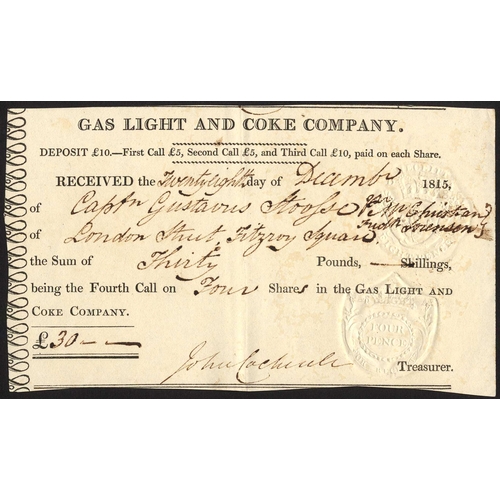 GAS LIGHT AND COKE COMPANY.
DEPOSIT £10.—First Call £5, Second Call £5, and Third Call £10, paid on each Share.
RECEIVED the Twentyeight day of December 1815,
of Captn Gustavus
of London Street Fitzroy Square
the Sum of Thirty Pounds, — Shillings,
being the Fourth Call on Four Shares in the GAS LIGHT AND
COKE COMPANY.
£30 — —
FOUR
PENCE
John Treasurer.